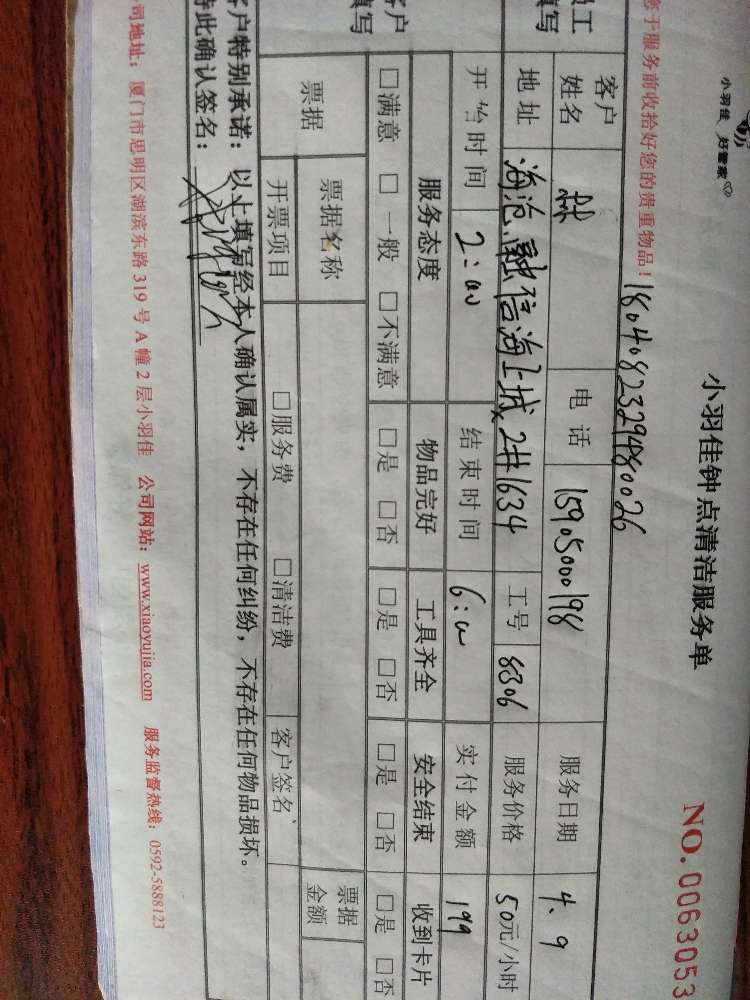 小羽佳 好管家
小羽佳钟点清洁服务单
NO.0063053
您于服务前收拾好您的贵重物品! 1804082329480026
员工
填写
客户
姓名
林
电 话
15905000198
服务日期
4.9
地 址
海沧.融信海上城2#1634
工号
8306
服务价格
50元/小时
开始时间
2:00
结束时间
6:00
实付金额
199
客户
填写
服务态度
物品完好
工具齐全
安全结束
收到卡片
□满意 □一般 □不满意
□是 □否
□是 □否
□是 □否
□是 □否
票据
票据名称
票据
金额
开票项目
□服务费 □清洁费
客户签名
客户特别承诺:以上填写经本人确认属实,不存在任何纠纷,不存在任何物品损坏。
特此确认签名:
公司地址:厦门市思明区湖滨东路 319 号 A 幢 2 层小羽佳 公司网站:www.xiaoyujia.com 服务监督热线:0592-5888123